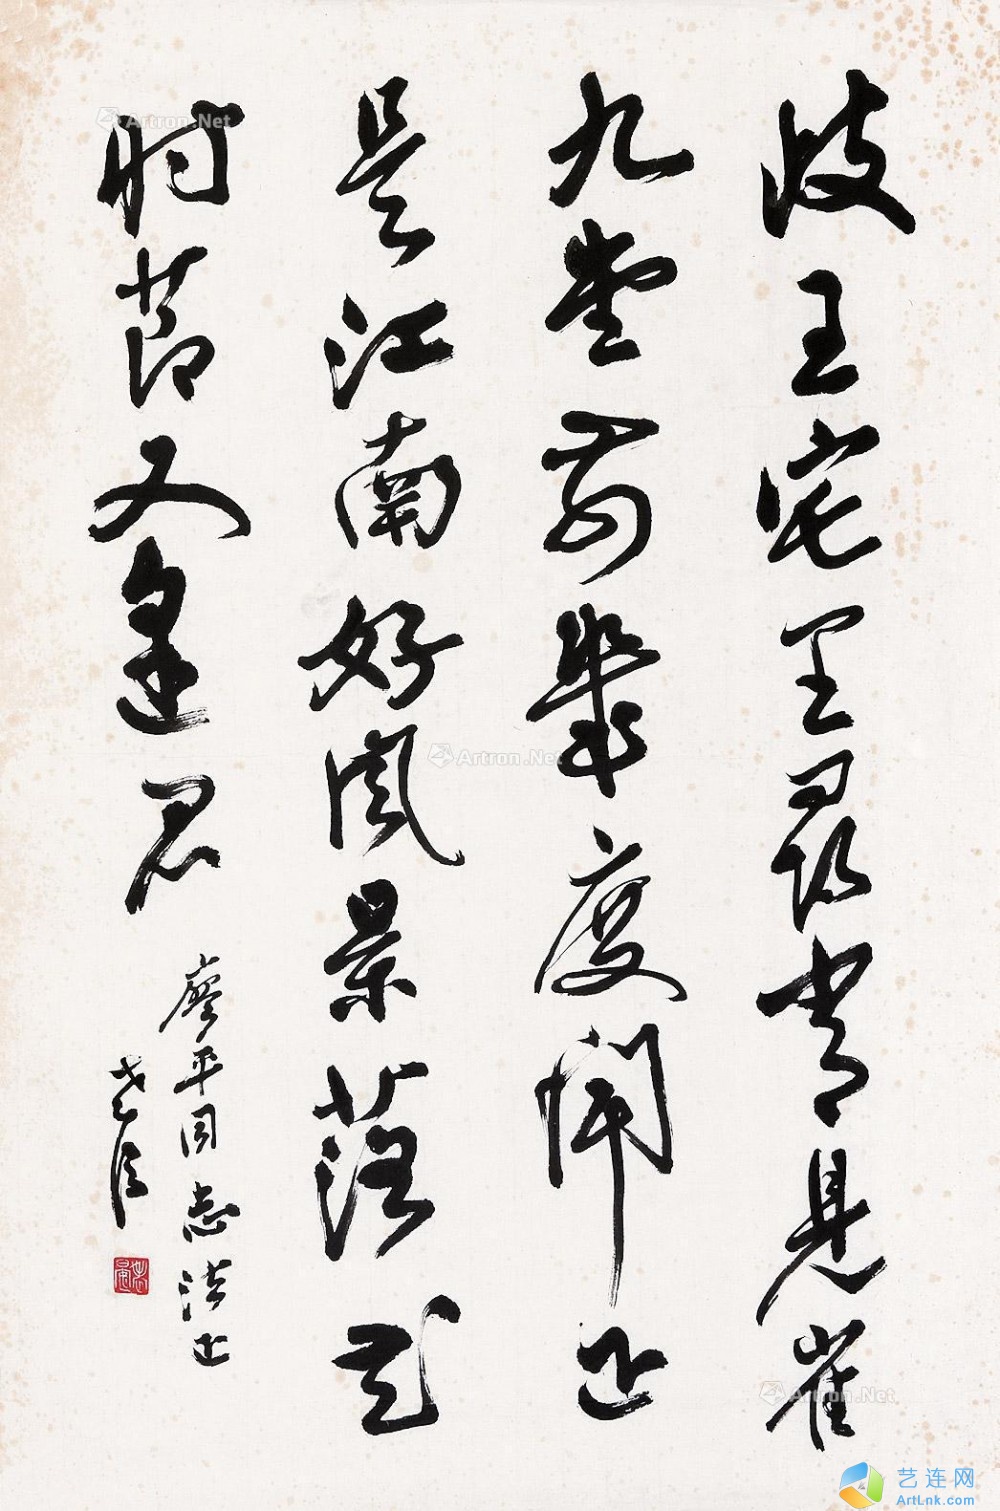 岐王宅里尋常見崔
九堂前幾度聞正
是江南好風景落花
時節又逢君
廖平同志法正
Artron.Net
Artron.Net
Artron.Net
艺连网
ArtLnk.com